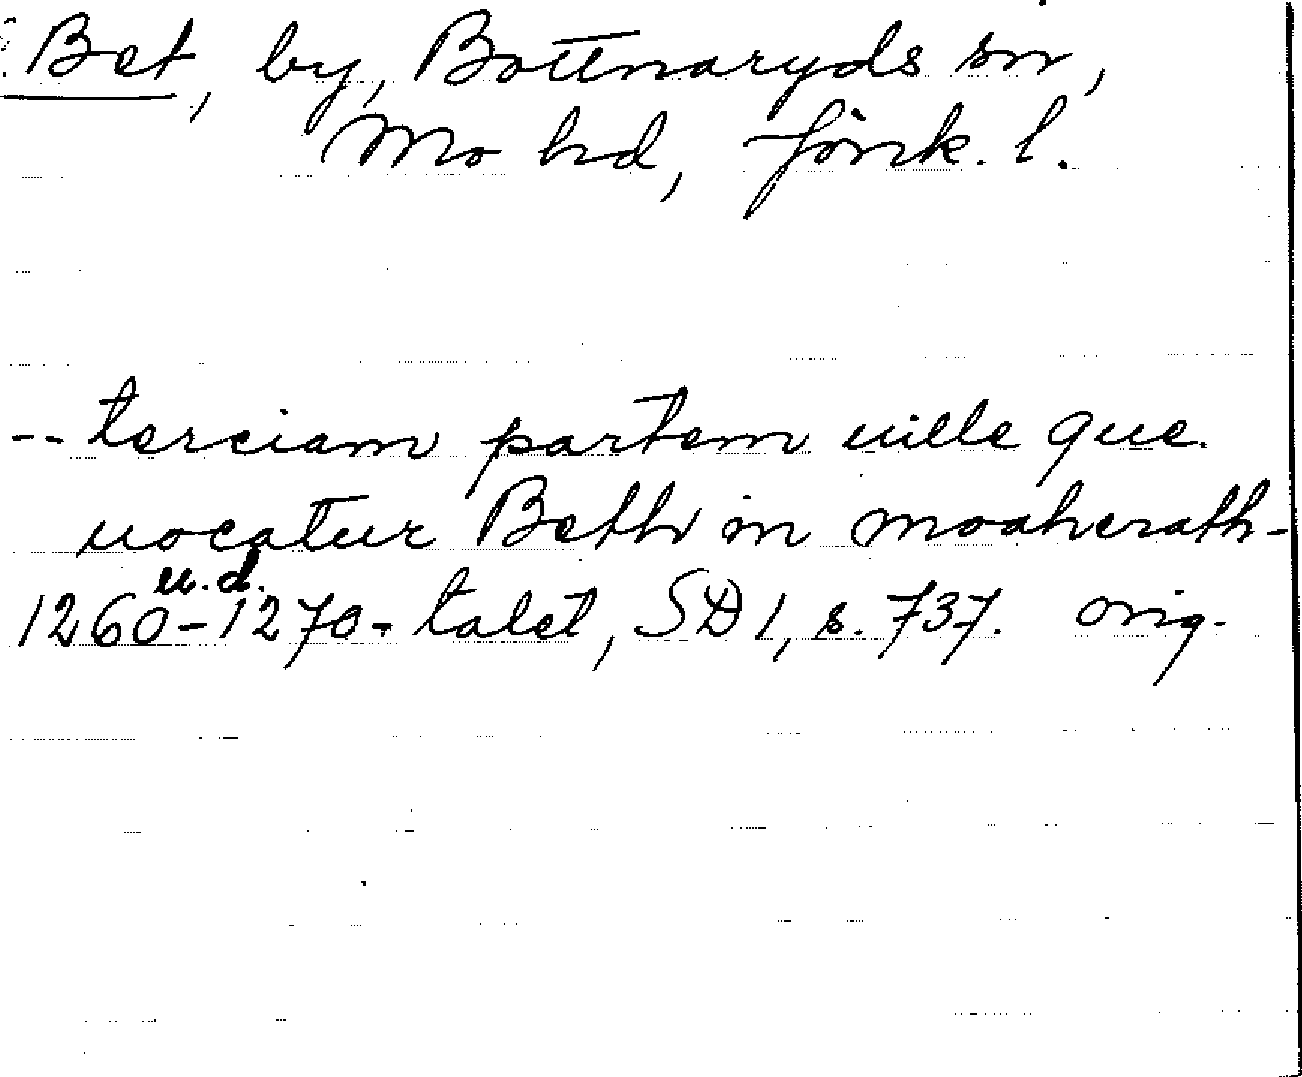 Bet, by, Bottnaryds sn,
Mo hd, Jönk. l.
-- terciam partem uille que
uocatur Beth in moahærath-
u.d.
1260-1270-talet, SD 1, s. 737. orig.